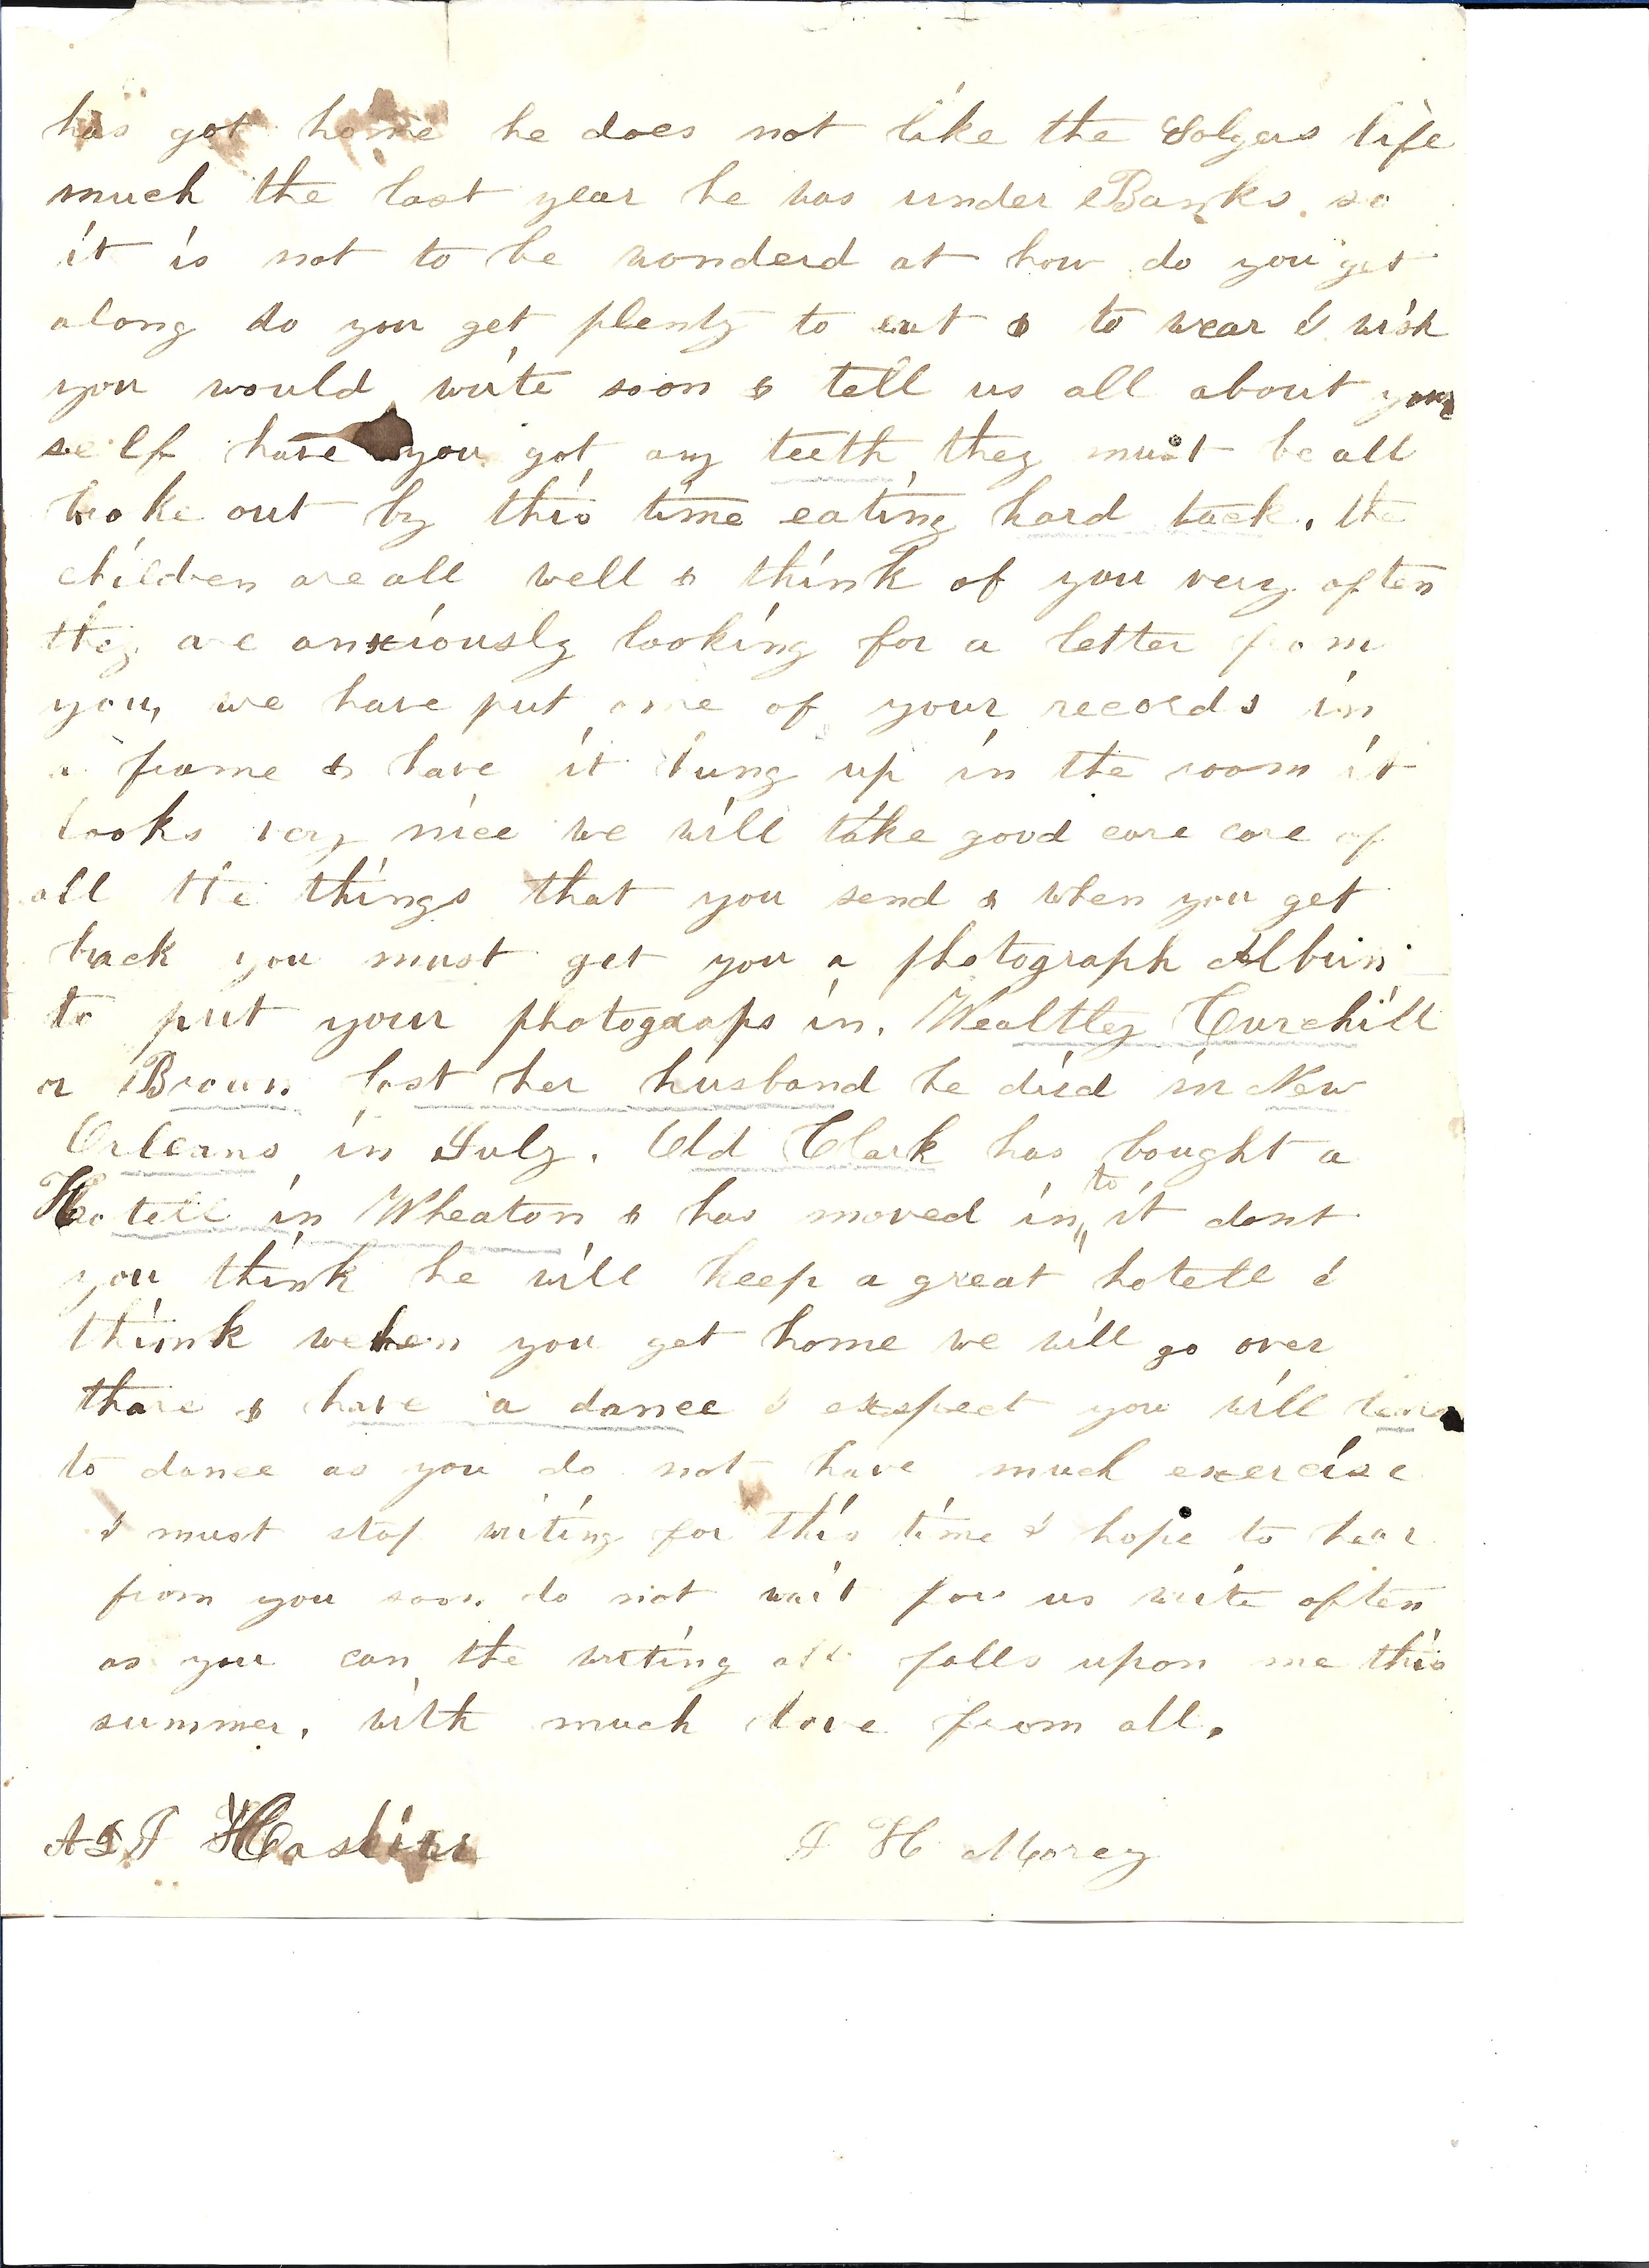 has got home he does not like the Solgers life
much the last year he was under Banks. so
it is not to be wonderd at how do you get
along do you get plenty to eat & to wear I wish
you would write soon & tell us all about your
self have you got any teeth they must be all
broke out by this time eating hard tack. the
children are all well & think of you very often
they are anxiously looking for a letter from
you, we have put one of your records in
a frame & have it hung up in the room it
looks very nice we will take good care care of
all the things that you send & when you get
back you must get you a photograph Album
to put your photograps in. Wealthy Curchill
or Brown lost her husband he died in New
Orleans in July. Old Clark has bought a
Hotell in Wheaton & has moved in to it dont
you think he will keep a great hotell I
think when you get home we will go over
thare & have a dance I exspect you will
to dance as you do not have much exercise
I must stop writing for this time I hope to hear
from you soon do not wait for us write often
as you can the writing all falls upon me this
summer. with much love from all.
Haskins
H Morey